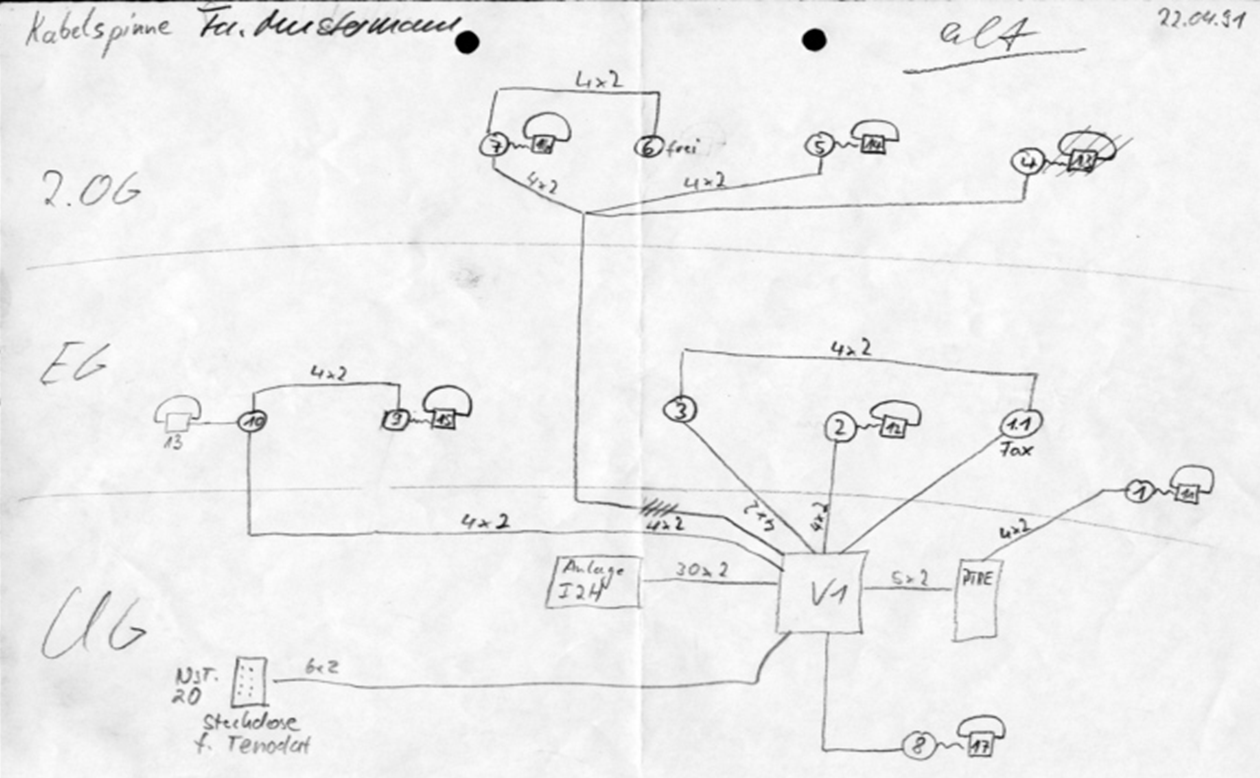 Kabelspinne Fa. Mustermann
alt
22.04.91
4x2
7
6 frei
5
14
4
13
4x2
4x2
2.OG
EG
4x2
4x2
13
10
9
15
3
2
12
1.1
Fax
1
4x2
4x2
4x2
4x2
Anlage
I2H
30x2
V1
5x2
UG
NST.
20
6x2
Steckdose
f. Tenodat
8
17